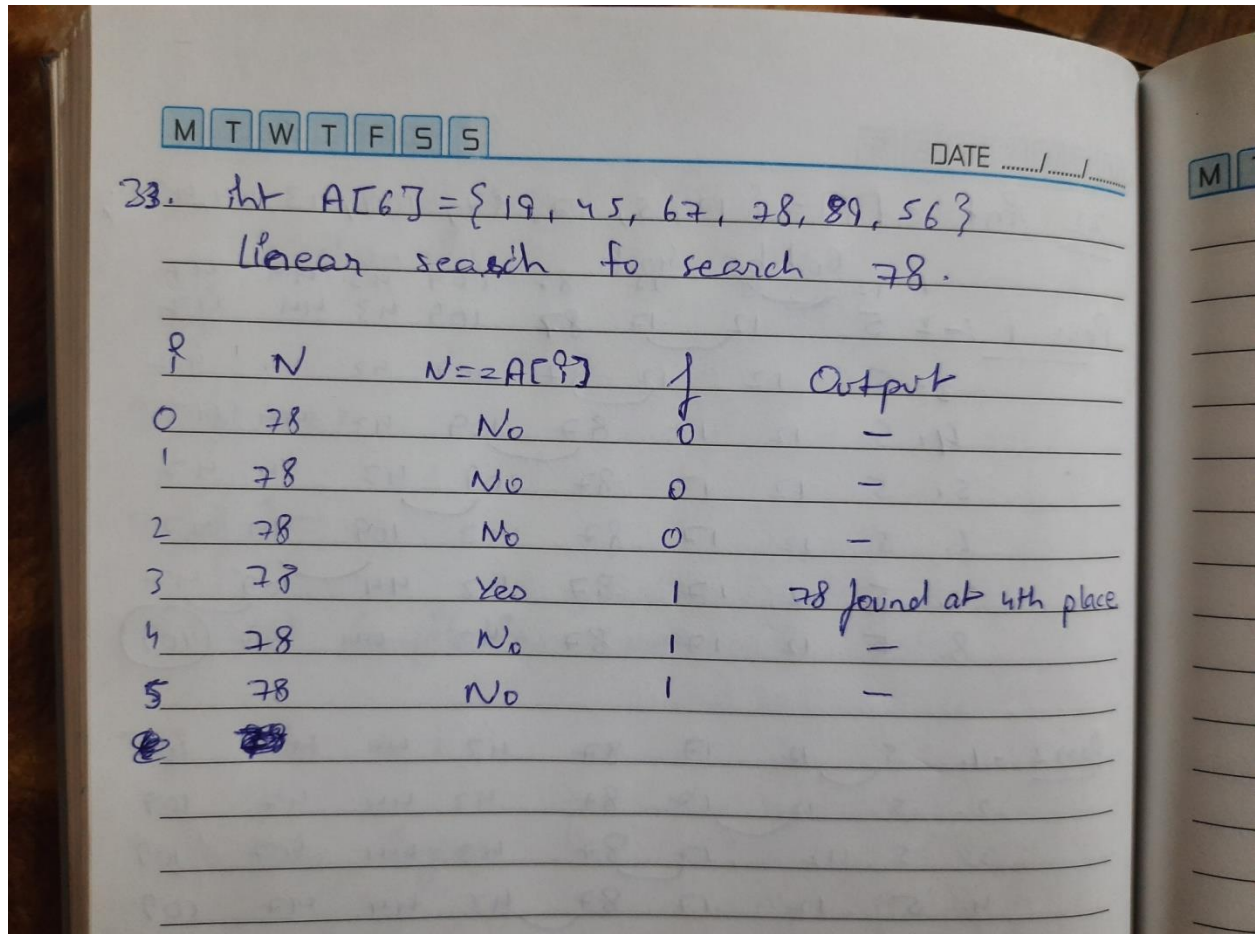 M T W T F S S
DATE ....../....../......
M T
33. int A[6] = {19, 45, 67, 78, 89, 56}
linear search to search 78.
i N N==A[i] f Output
0 78 No 0 –
1 78 No 0 –
2 78 No 0 –
3 78 Yes 1 78 found at 4th place
4 78 No 1 –
5 78 No 1 –